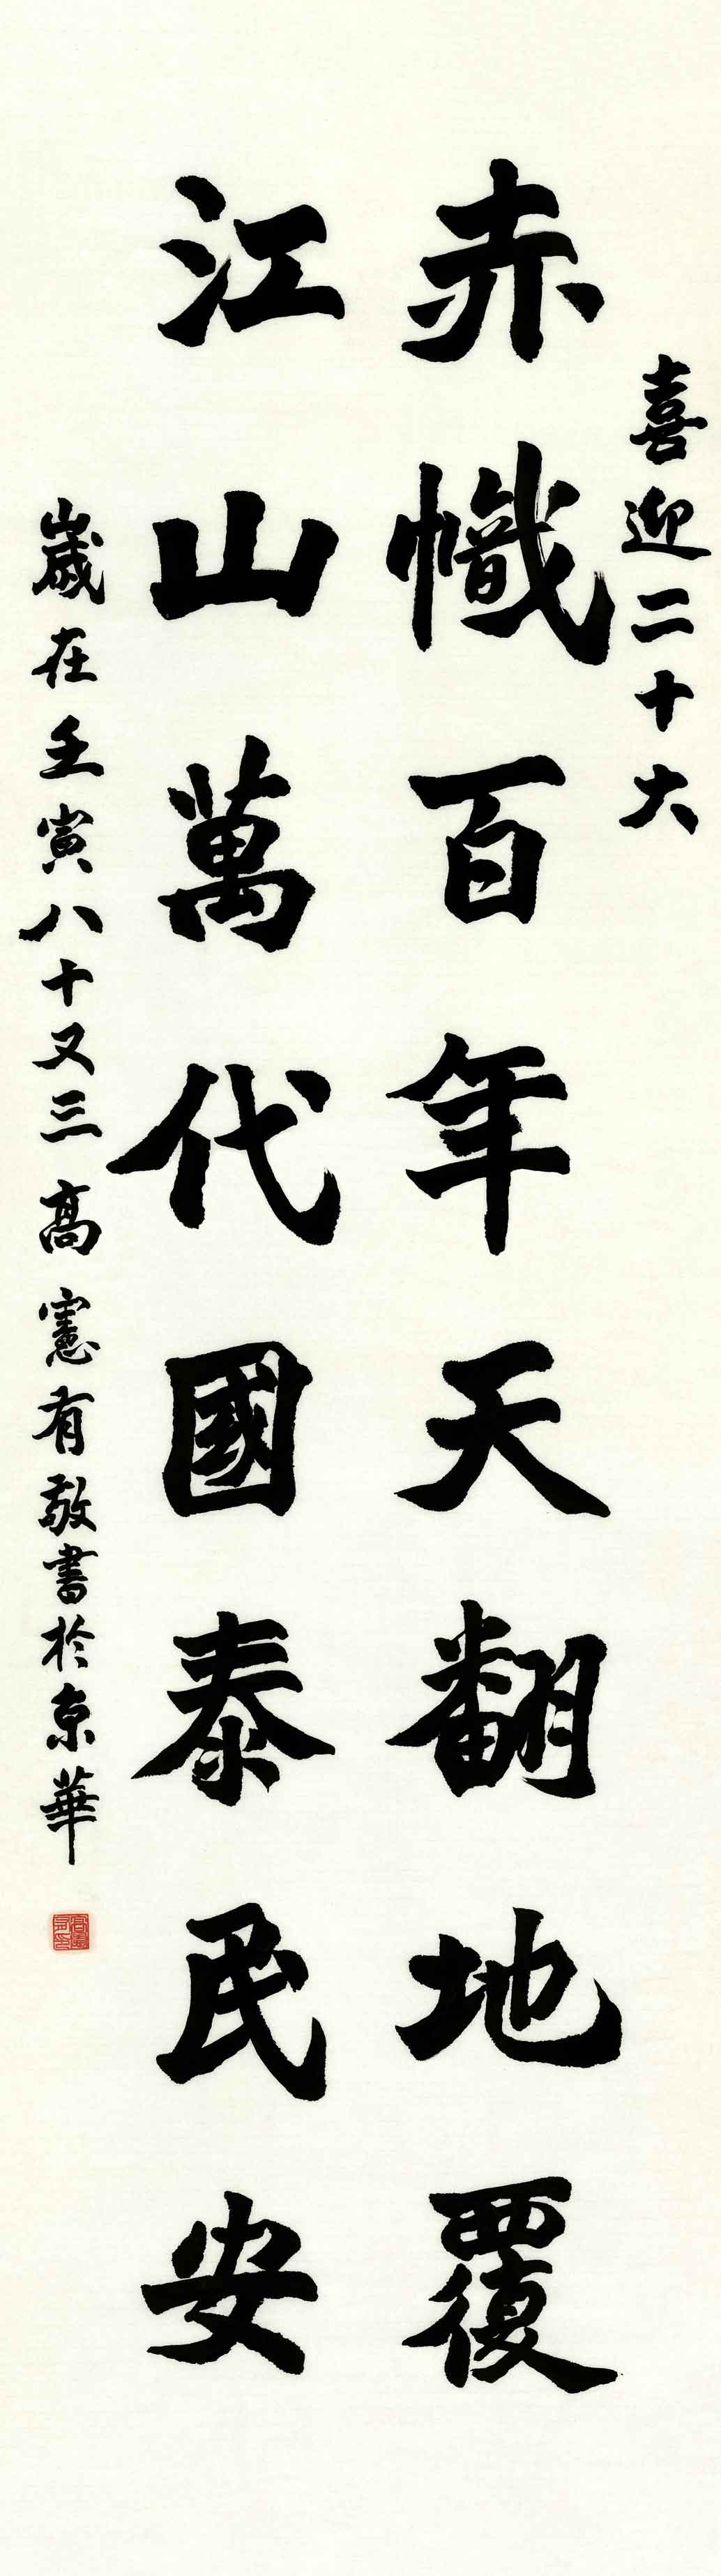 喜迎二十大
赤幟百年天翻地覆
江山萬代國泰民安
歲在壬寅八十又三高憲有敬書於京華